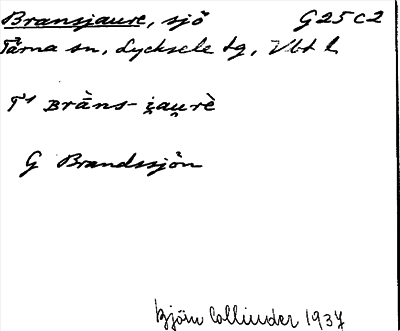 Bransjaure, sjö G25c2
Tärna sn, Lycksele tg, Vbt l
T¹ Brāns-i̯au̯rè
G Brandssjön
Björn Collinder 1937